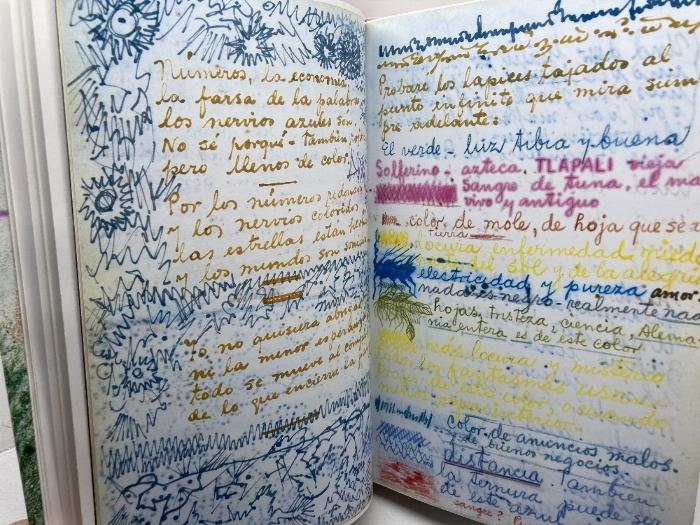 Números, la economía,
la farsa de la palabra
los nervios azules son.
No sé porqué - también
pero llenos de color.
Por los números redondos
y los nervios coloridos
las estrellas están
y los mundos son
Yo no quisiera
ni la menor esperanza
todo se mueve al
de lo que encierra la
Probare los lapices tajados al
punto infinito que mira siem
pre adelante:
El verde - luz tibia y buena
Solferino - azteca. TLAPALI vieja
Sangre de tuna, el mas
vivo y antiguo
color de mole, de hoja que se
tierra
locura enfermedad miedo
del sol y de la alegria
electricidad y pureza amor
nada es negro - realmente nada
hojas, tristeza, ciencia, Alema-
nia entera es de este color
mas locura y misterio
todos los fantasmas usan
trajes de este color, o cuando
menos ropa interior.
color de anuncios malos
y de buenos negocios
distancia. Tambien
la ternura puede ser
de este azul
sangre?